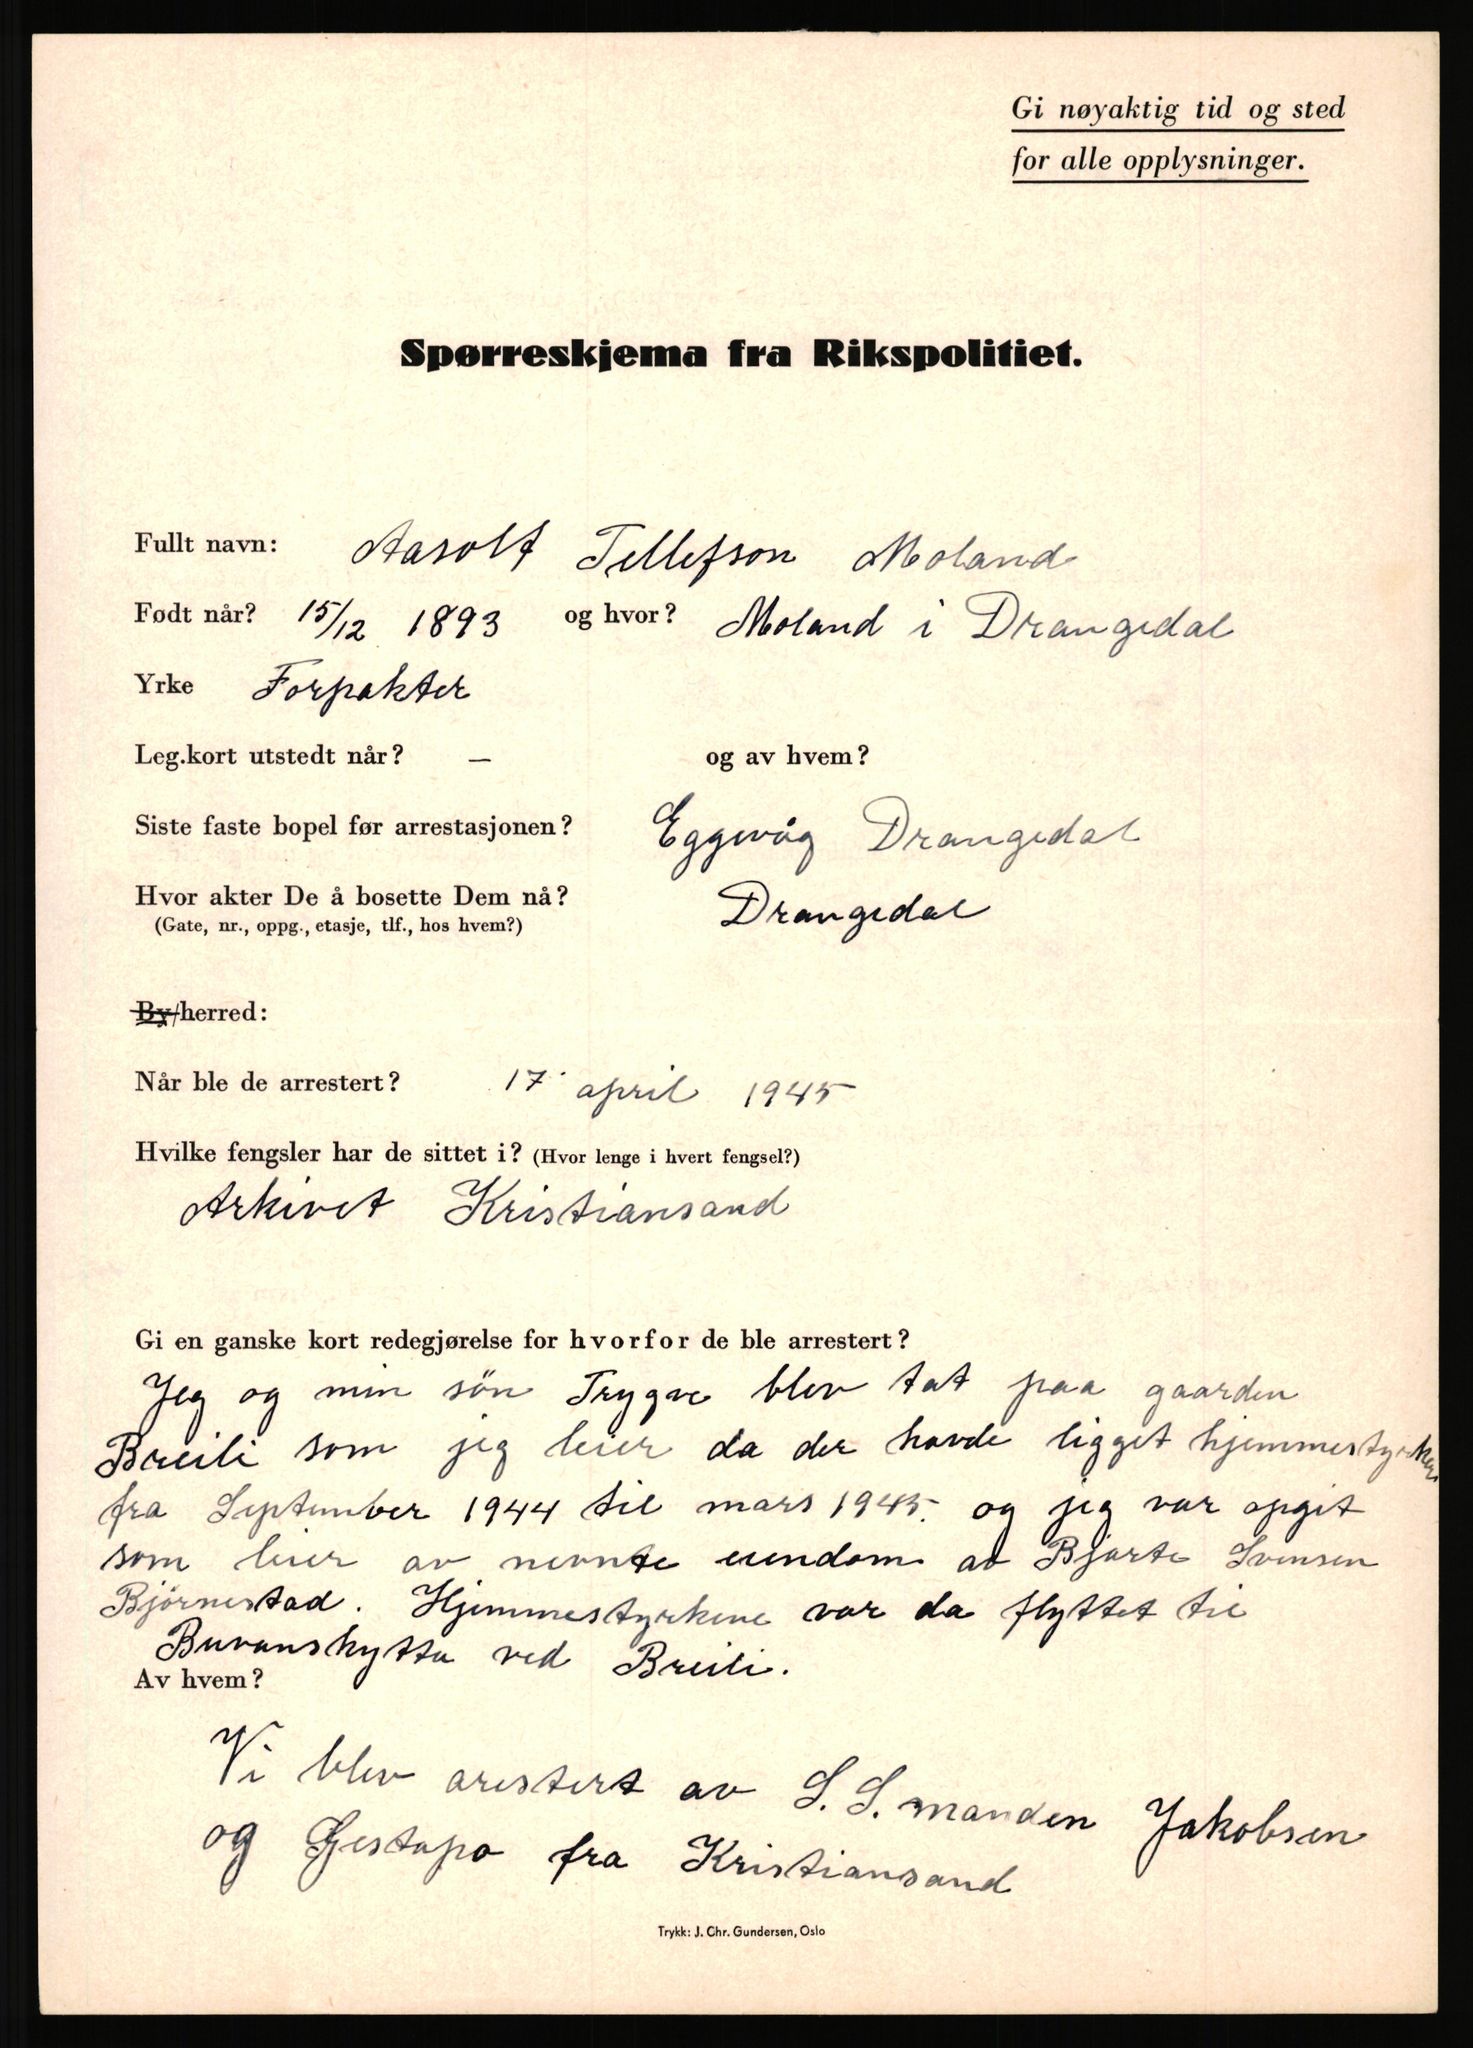 Gi nøyaktig tid og sted
for alle opplysninger.
Spørreskjema fra Rikspolitiet.
Fullt navn: Aasolf Tellefson Moland
Født når? 15/12 1893 og hvor? Moland i Drangedal
Yrke Forpakter
Leg.kort utstedt når? — og av hvem?
Siste faste bopel før arrestasjonen? Eggevåg Drangedal
Hvor akter De å bosette Dem nå? Drangedal
(Gate, nr., oppg., etasje, tlf., hos hvem?)
By/herred:
Når ble de arrestert? 17. april 1945
Hvilke fengsler har de sittet i? (Hvor lenge i hvert fengsel?)
Arkivet Kristiansand
Gi en ganske kort redegjørelse for hvorfor de ble arrestert?
Jeg og min sön Trygve blev tat paa gaarden
Breili som jeg leier da der havde ligget hjemmestyrker
fra September 1944 til mars 1945. og jeg var opgit
som leier av nevnte eiendom av Bjarte Svensen
Björnestad. Hjemmestyrkene var da flyttet til
Buvanshytta ved Breili.
Av hvem?
Vi blev arestert av S. S. manden Jakobsen
og Gestapo fra Kristiansand
Trykk: J. Chr. Gundersen, Oslo